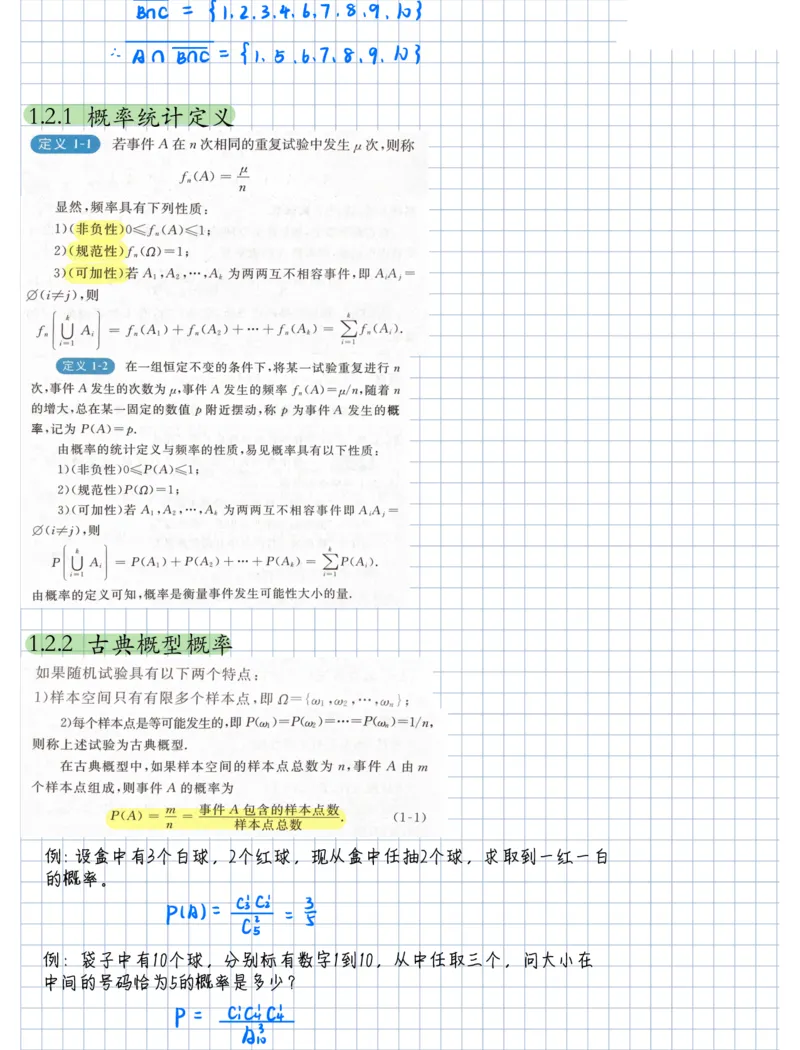 B∩C = {1.2.3.4.6.7.8.9.10}
∴ A∩B∩C = {1.5.6.7.8.9.10}
1.2.1 概率统计定义
定义 1-1 若事件 A 在 n 次相同的重复试验中发生 μ 次,则称
fₙ(A) = μ/n
显然,频率具有下列性质:
1)(非负性)0≤fₙ(A)≤1;
2)(规范性)fₙ(Ω)=1;
3)(可加性)若 A₁,A₂,…,Aₖ 为两两互不相容事件,即 AᵢAⱼ=
∅(i≠j),则
fₙ[⋃ᵢ₌₁ᵏ Aᵢ] = fₙ(A₁)+fₙ(A₂)+…+fₙ(Aₖ) = ∑ᵢ₌₁ᵏ fₙ(Aᵢ).
定义 1-2 在一组恒定不变的条件下,将某一试验重复进行 n
次,事件 A 发生的次数为 μ,事件 A 发生的频率 fₙ(A)=μ/n,随着 n
的增大,总在某一固定的数值 p 附近摆动,称 p 为事件 A 发生的概
率,记为 P(A)=p.
由概率的统计定义与频率的性质,易见概率具有以下性质:
1)(非负性)0≤P(A)≤1;
2)(规范性)P(Ω)=1;
3)(可加性)若 A₁,A₂,…,Aₖ 为两两互不相容事件即 AᵢAⱼ=
∅(i≠j),则
P[⋃ᵢ₌₁ᵏ Aᵢ] = P(A₁)+P(A₂)+…+P(Aₖ) = ∑ᵢ₌₁ᵏ P(Aᵢ).
由概率的定义可知,概率是衡量事件发生可能性大小的量.
1.2.2 古典概型概率
如果随机试验具有以下两个特点:
1)样本空间只有有限多个样本点,即 Ω={ω₁,ω₂,…,ωₙ};
2)每个样本点是等可能发生的,即 P(ω₁)=P(ω₂)=…=P(ωₙ)=1/n,
则称上述试验为古典概型.
在古典概型中,如果样本空间的样本点总数为 n,事件 A 由 m
个样本点组成,则事件 A 的概率为
P(A) = m/n = 事件 A 包含的样本点数/样本点总数. (1-1)
例: 设盒中有3个白球, 2个红球, 现从盒中任抽2个球, 求取到一红一白
的概率。
P(A) = C₃¹C₂¹/C₅² = 3/5
例: 袋子中有10个球, 分别标有数字1到10, 从中任取三个, 问大小在
中间的号码恰为5的概率是多少?
P = C₁¹C₄¹C₄¹/A₁₀³